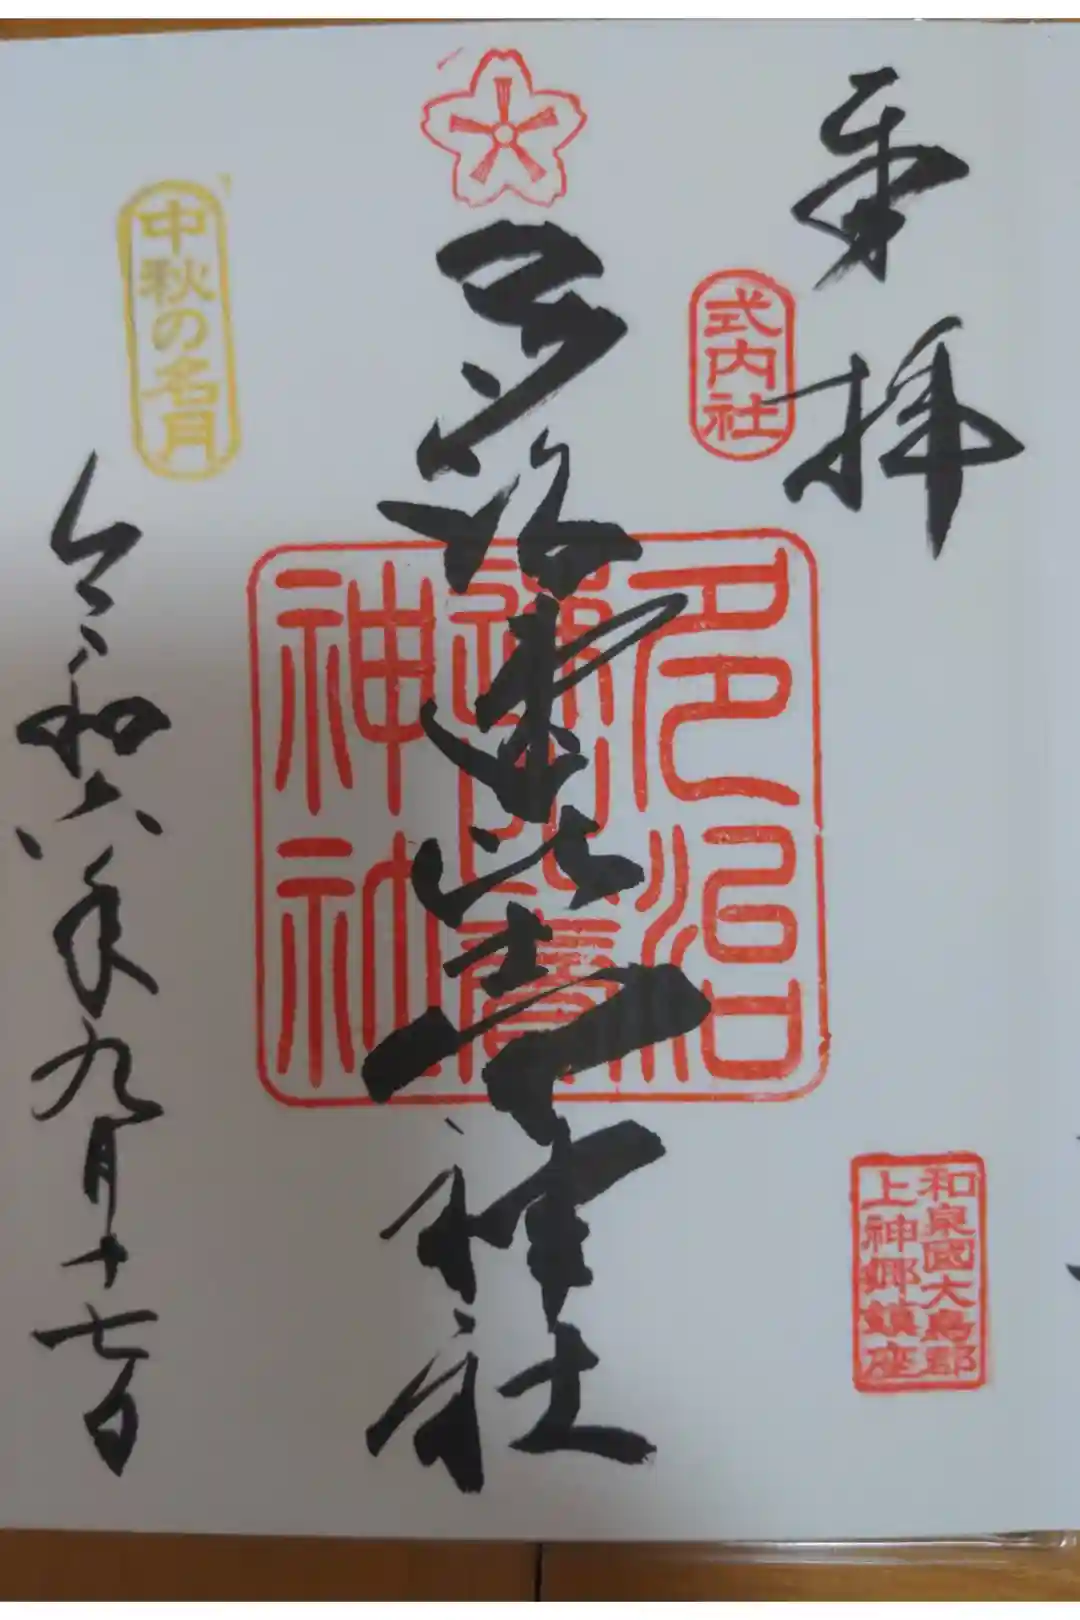 奉拝
式内社
和泉國大鳥郡
上神郷鎮座
多治速比売神社
多治
速比賣
神社
中秋の名月
令和六年九月十七日